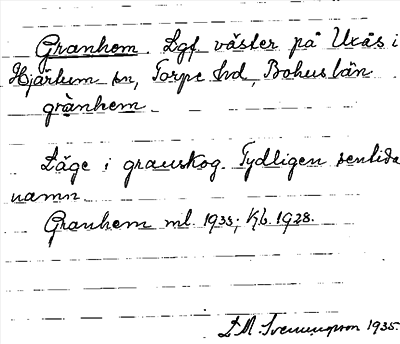 Granhem. Lgf. väster på Uxås i
Hjärtum sn, Torpe hd, Bohuslän
grànhem
Läge i granskog. Tydligen sentida
namn
Granhem ml. 1935; Kb. 1928.
1935.